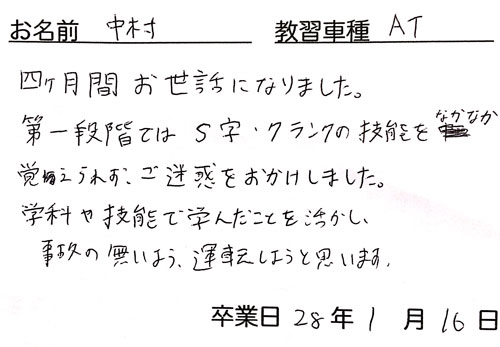 お名前 中村 教習車種 AT
四ヶ月間 お世話になりました。
第一段階では S字・クランクの技能をなかなか
覚えられず、ご迷惑をおかけしました。
学科や技能で学んだことを活かし、
事故の無いよう、運転しようと思います。
卒業日 28年 1月 16日